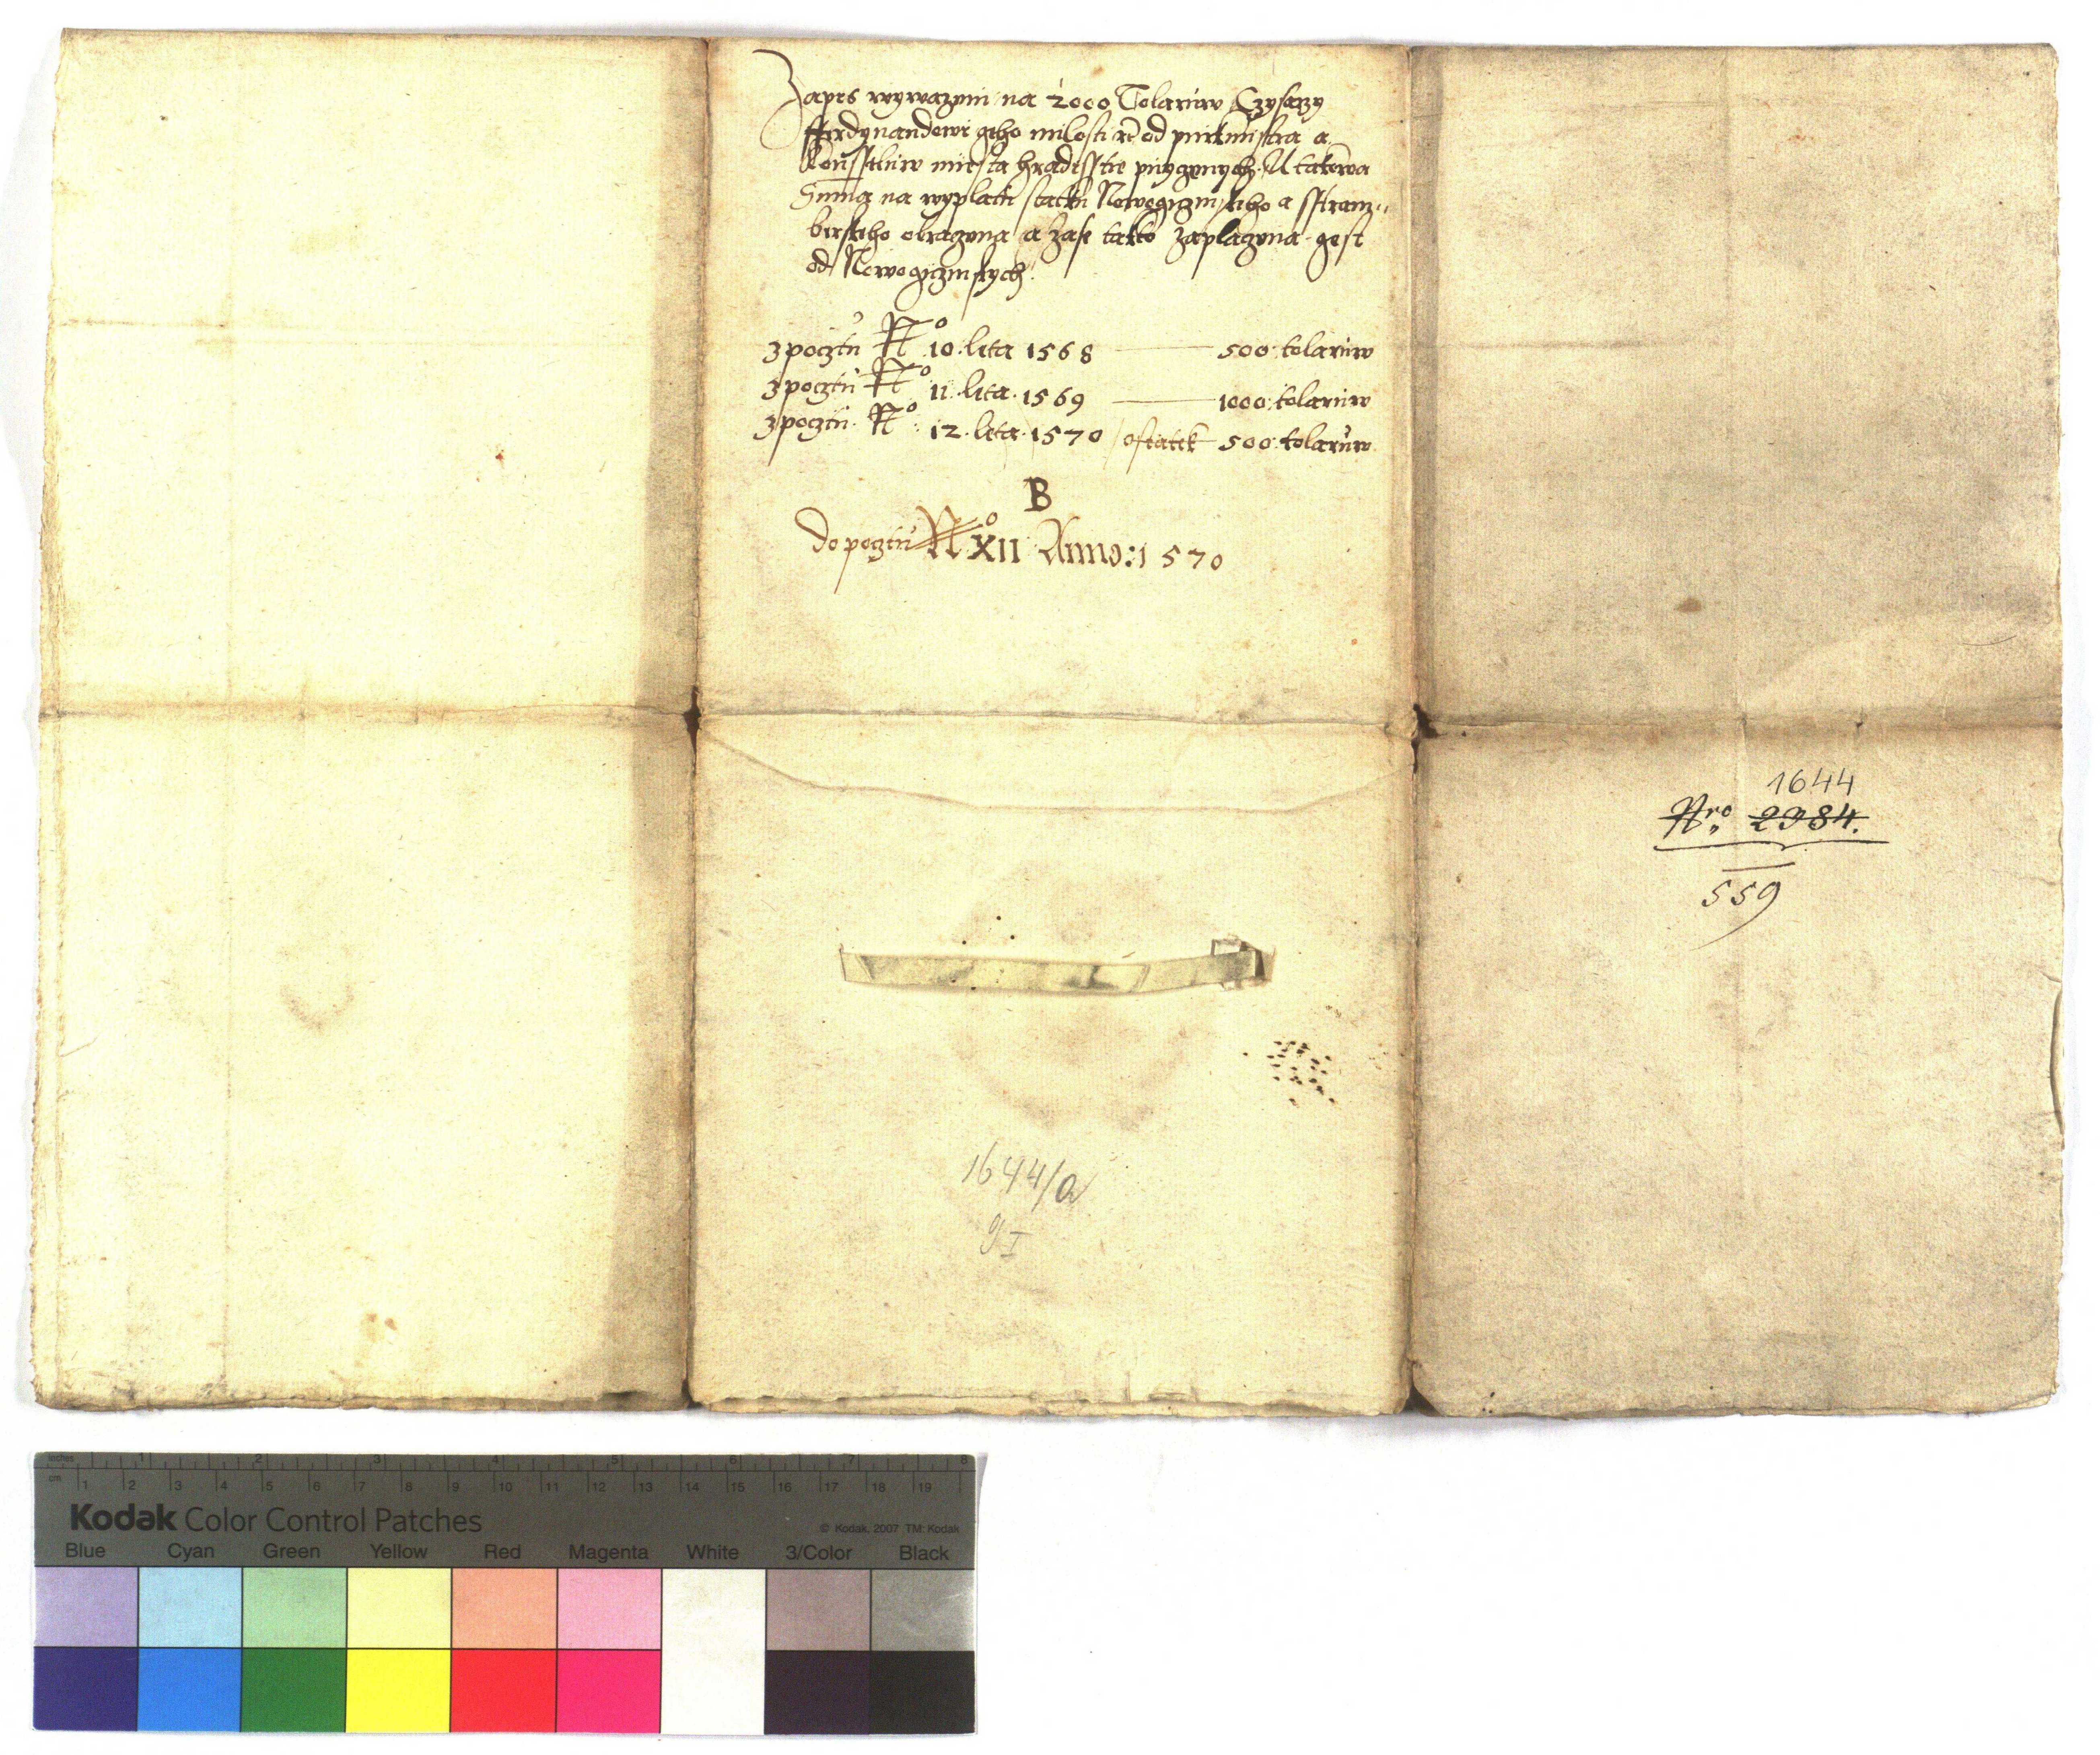 Zapis wywazeni na 2000 Tolaruw Czysarzy
Ferdynandowi geho milosti od purkmistra a
Konsseluw miesta hradisstie A takowa
Suma na wyplatu statku Nowogiczinskeho a sstram-
berskeho obraczena a zase takto zaplaczena gest
od Nowogiczinskych.
z pocztu No 10. leta 1568 500 tolaruw
z pocztu No 11. leta 1569 1000 tolaruw
z pocztu No 12. leta 1570 ostatek 500 tolaruw
B
do pocztu No XII Anno: 1570
1644
Nro 2984.
559
1644/a
I
inches 1 2 3 4 5 6 7 8
cm 1 2 3 4 5 6 7 8 9 10 11 12 13 14 15 16 17 18 19
Kodak Color Control Patches
© Kodak, 2007 TM: Kodak
Blue Cyan Green Yellow Red Magenta White 3/Color Black